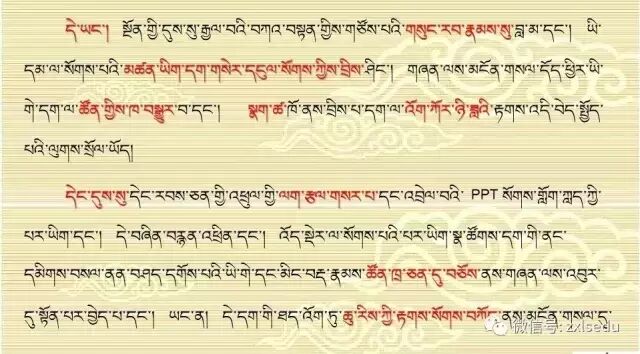 དེ་ཡང་། སྔོན་གྱི་དུས་སུ་རྒྱལ་བའི་བཀའ་བསྟན་གྱིས་གཙོས་པའི་གསུང་རབ་རྣམས་སུ་བླ་མ་དང་། ཡི་
དམ་ལ་སོགས་པའི་མཚན་ཡིག་དག་གསེར་དངུལ་སོགས་ཀྱིས་བྲིས་ཤིང་། གཞན་ལས་མངོན་གསལ་དོད་ཕྱིར་ཡི་
གེ་དག་ལ་ཚོན་གྱིས་ཁ་བསྒྱུར་བ་དང་། སྣག་ཚ་ཁོ་ནས་བྲིས་པ་དག་ལ་འོག་ཀོར་ཉི་ཟླའི་རྟགས་འདི་བེད་སྤྱོད་
པའི་ལུགས་སྲོལ་ཡོད།
དེང་དུས་སུ་དེང་རབས་ཅན་གྱི་འཕྲུལ་གྱི་ལག་རྩལ་གསར་པ་དང་འབྲེལ་བའི་ PPT སོགས་གློག་ཀླད་ཀྱི་
པར་ཡིག་དང་། དེ་བཞིན་བརྙན་འཕྲིན་དང་། འོད་སྡེར་ལ་སོགས་པའི་པར་ཡིག་སྣ་ཚོགས་དག་གི་ནང་
དམིགས་བསལ་ནན་བཤད་དགོས་པའི་ཡི་གེ་དང་མིང་བརྡ་རྣམས་ཚོན་ཁྲ་ཅན་དུ་བཅོས་ནས་གཞན་ལས་འབུར་
དུ་སྟོན་པར་བྱེད་པ་དང་། ཡང་ན། དེ་དག་གི་ཐད་འོག་ཏུ་ཆུ་རིས་ཀྱི་རྟགས་སོགས་བཀོད་ནས་མངོན་གསལ་དུ་
微信号: zxlsedu